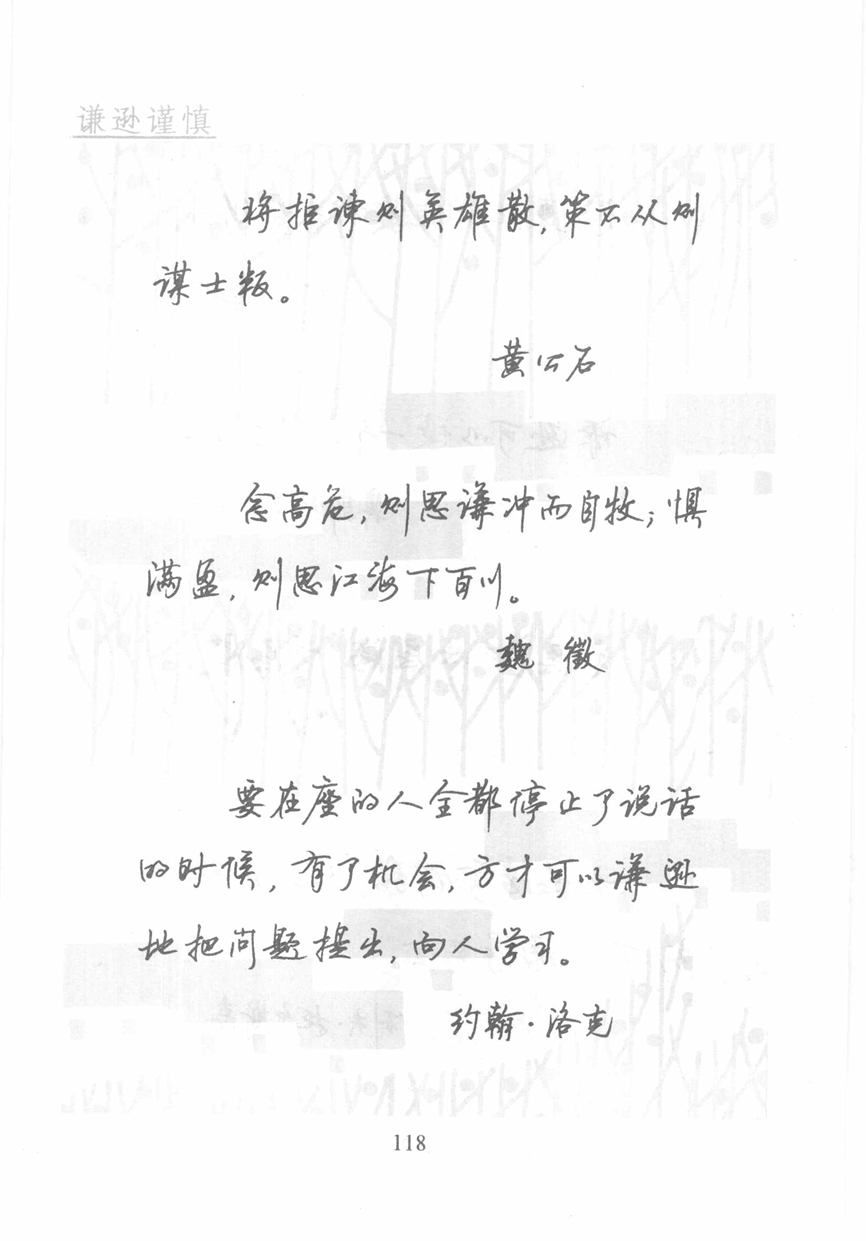 谦逊谨慎
将拒谏则英雄散,策不从则
谋士叛。
黄公石
念高危,则思谦冲而自牧;惧
满盈,则思江海下百川。
魏 徵
要在座的人全都停止了说话
的时候,有了机会,方才可以谦逊
地把问题提出,向人学习。
约翰·洛克
118